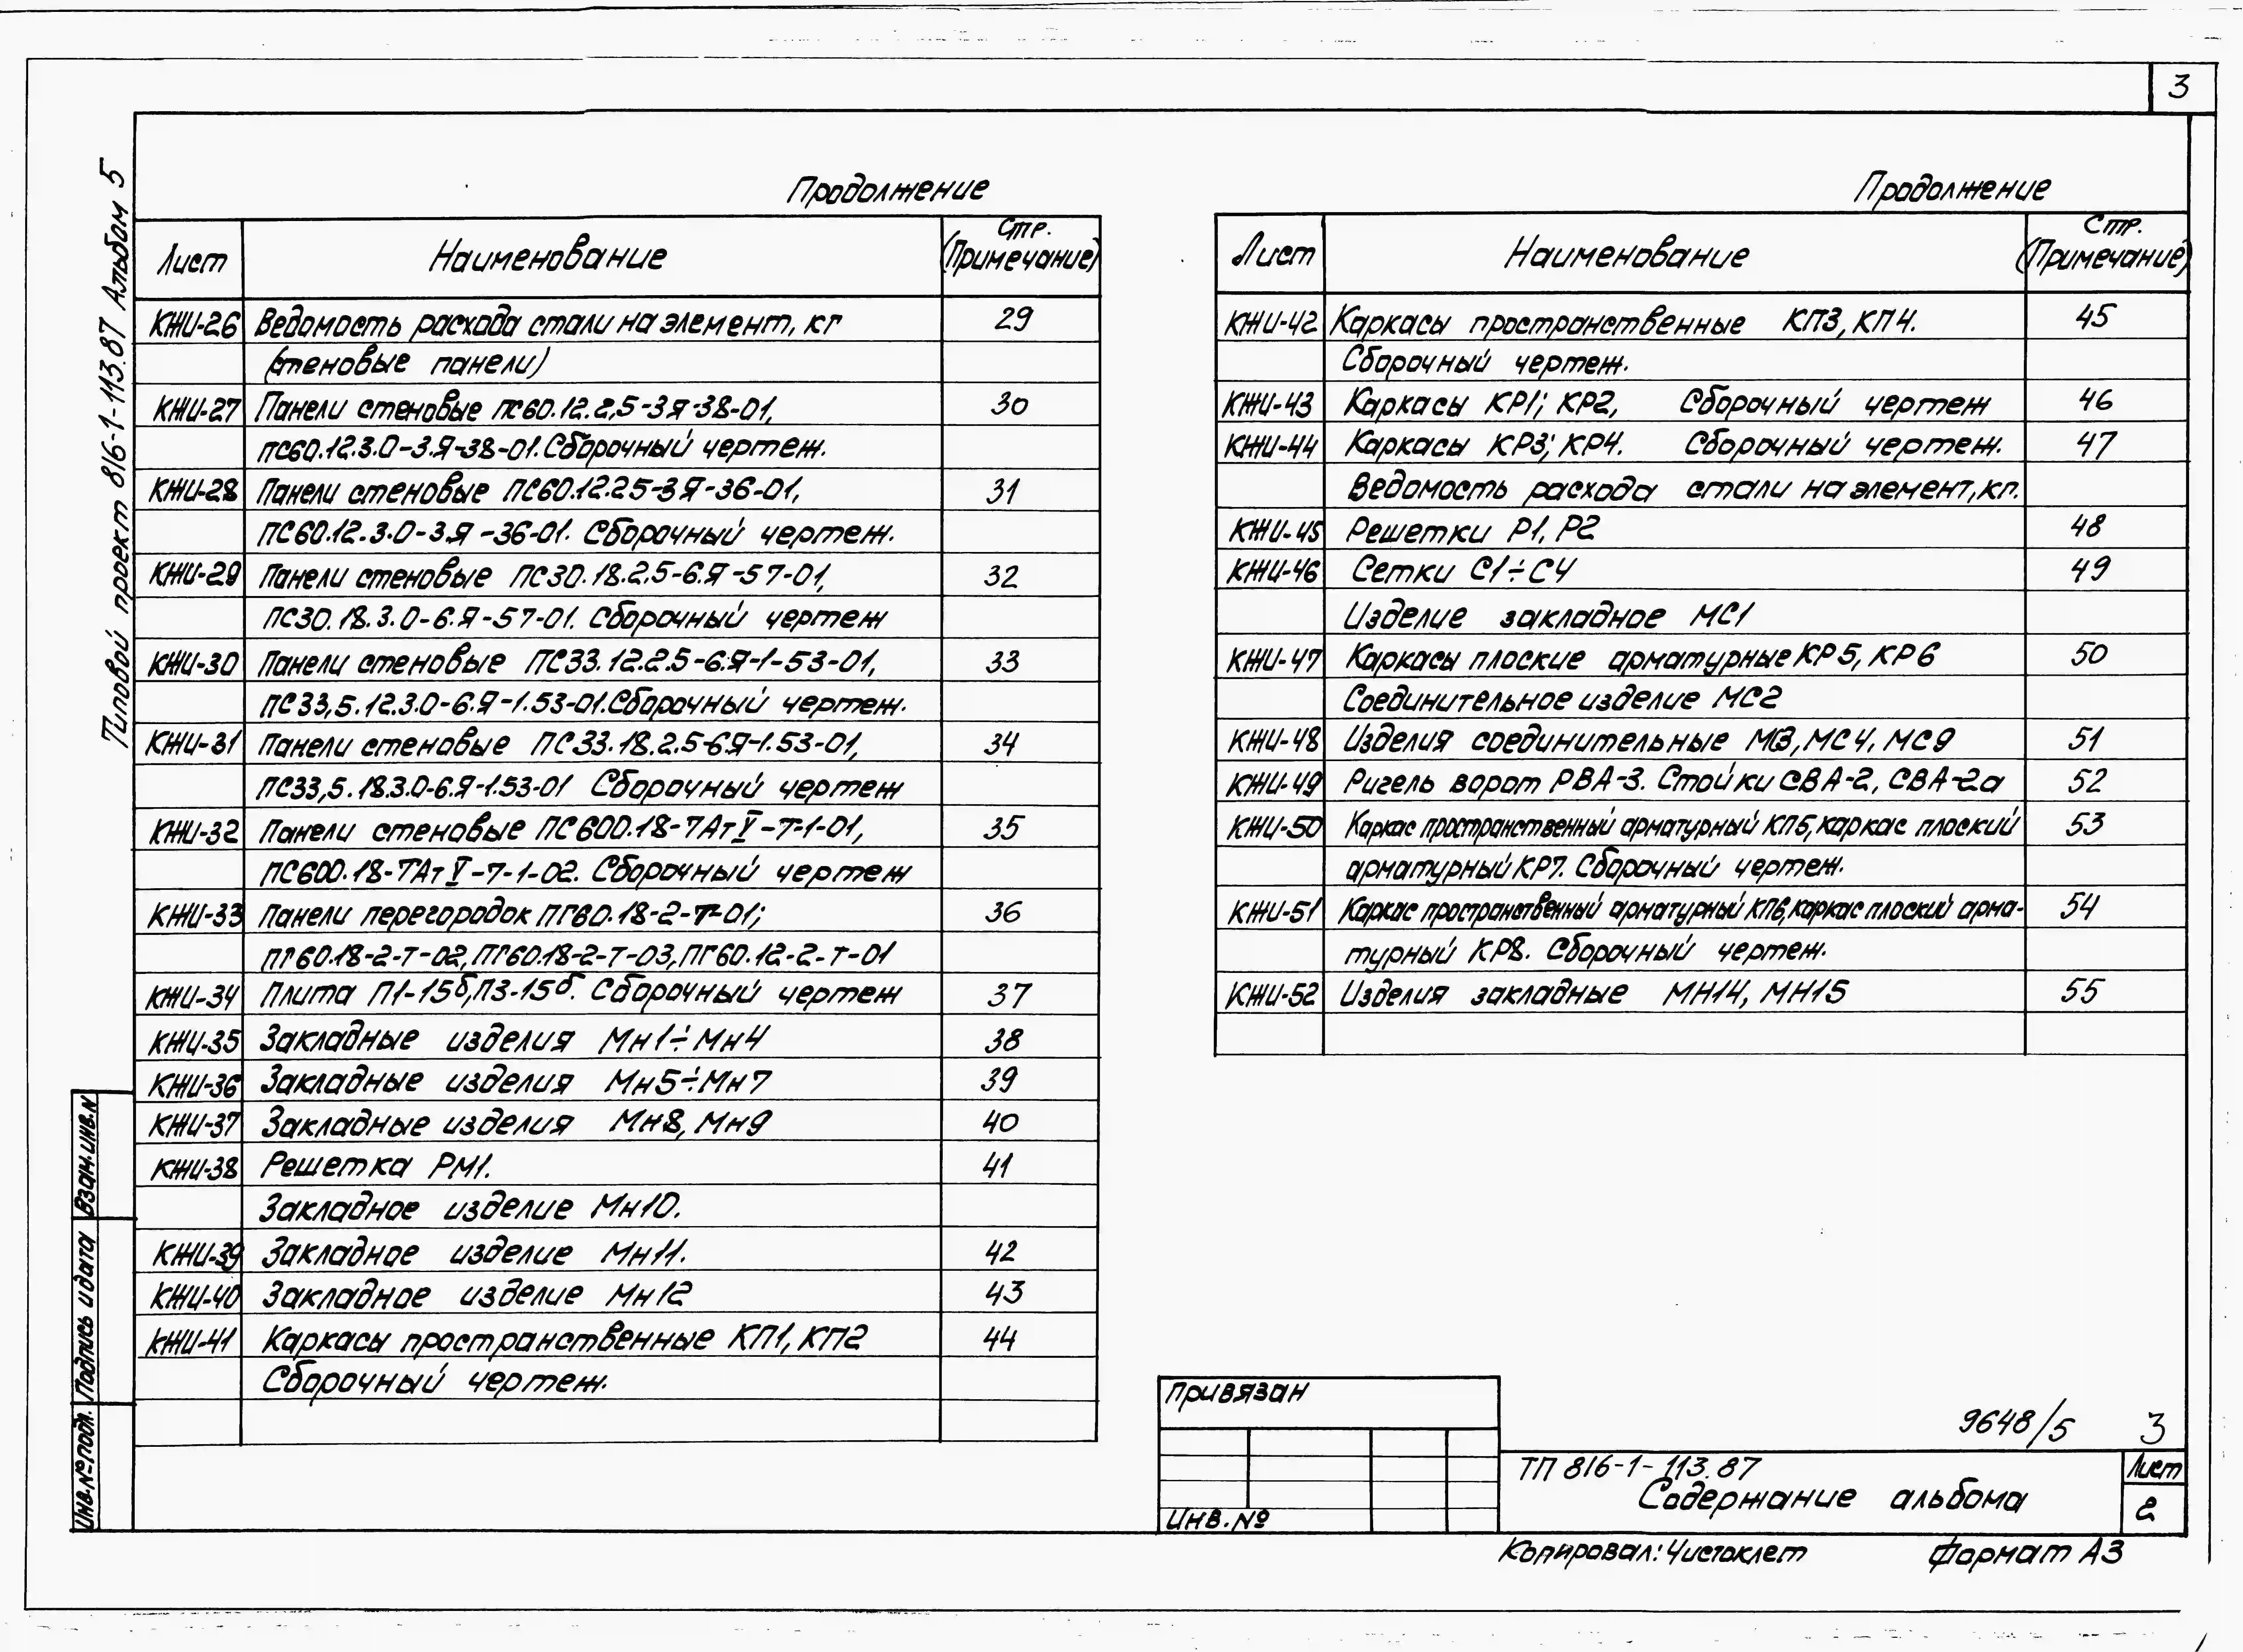 3
Типовой проект 816-1-113.87 Альбом 5
Продолжение
Лист Наименование Стр. (Примечание)
КЖИ-26 Ведомость расхода стали на элемент, кг 29
(стеновые панели)
КЖИ-27 Панели стеновые ПС60.12.2,5-3Я-38-01, 30
ПС60.12.3.0-3.Я-38-01. Сборочный чертеж.
КЖИ-28 Панели стеновые ПС60.12.25-3Я-36-01, 31
ПС60.12.3.0-3.Я-36-01. Сборочный чертеж.
КЖИ-29 Панели стеновые ПС30.18.2.5-6.Я-57-01, 32
ПС30.18.3.0-6.Я-57-01. Сборочный чертеж
КЖИ-30 Панели стеновые ПС33.12.2.5-6.Я-1-53-01, 33
ПС33,5.12.3.0-6.Я-1.53-01. Сборочный чертеж.
КЖИ-31 Панели стеновые ПС33.18.2.5-6.Я-1.53-01, 34
ПС33,5.18.3.0-6.Я-1.53-01 Сборочный чертеж
КЖИ-32 Панели стеновые ПС600.18-7АтV-7-1-01, 35
ПС600.18-7АтV-7-1-02. Сборочный чертеж
КЖИ-33 Панели перегородок ПГ60.18-2-Т-01; 36
ПГ60.18-2-Т-02, ПГ60.18-2-Т-03, ПГ60.12-2-Т-01
КЖИ-34 Плита П1-15б, П3-15б. Сборочный чертеж 37
КЖИ-35 Закладные изделия Мн1÷Мн4 38
КЖИ-36 Закладные изделия Мн5÷Мн7 39
КЖИ-37 Закладные изделия Мн8, Мн9 40
КЖИ-38 Решетка РМ1. 41
Закладное изделие Мн10.
КЖИ-39 Закладное изделие Мн11. 42
КЖИ-40 Закладное изделие Мн12 43
КЖИ-41 Каркасы пространственные КП1, КП2 44
Сборочный чертеж.
Продолжение
Лист Наименование Стр. (Примечание)
КЖИ-42 Каркасы пространственные КП3, КП4. 45
Сборочный чертеж.
КЖИ-43 Каркасы КР1; КР2, Сборочный чертеж 46
КЖИ-44 Каркасы КР3; КР4. Сборочный чертеж. 47
Ведомость расхода стали на элемент, кг.
КЖИ-45 Решетки Р1, Р2 48
КЖИ-46 Сетки С1÷С4 49
Изделие закладное МС1
КЖИ-47 Каркасы плоские арматурные КР5, КР6 50
Соединительное изделие МС2
КЖИ-48 Изделия соединительные МС3, МС4, МС9 51
КЖИ-49 Ригель ворот РВА-3. Стойки СВА-2, СВА-2а 52
КЖИ-50 Каркас пространственный арматурный КП5, каркас плоский 53
арматурный КР7. Сборочный чертеж.
КЖИ-51 Каркас пространственный арматурный КП6, каркас плоский арма- 54
турный КР8. Сборочный чертеж.
КЖИ-52 Изделия закладные МН14, МН15 55
Взам.инв.N
Подпись и дата
Инв.№ подл.
Привязан
Инв.№
9648/5 3
ТП 816-1-113.87
Содержание альбома
Лист
2
Копировал: Чистоклет Формат А3